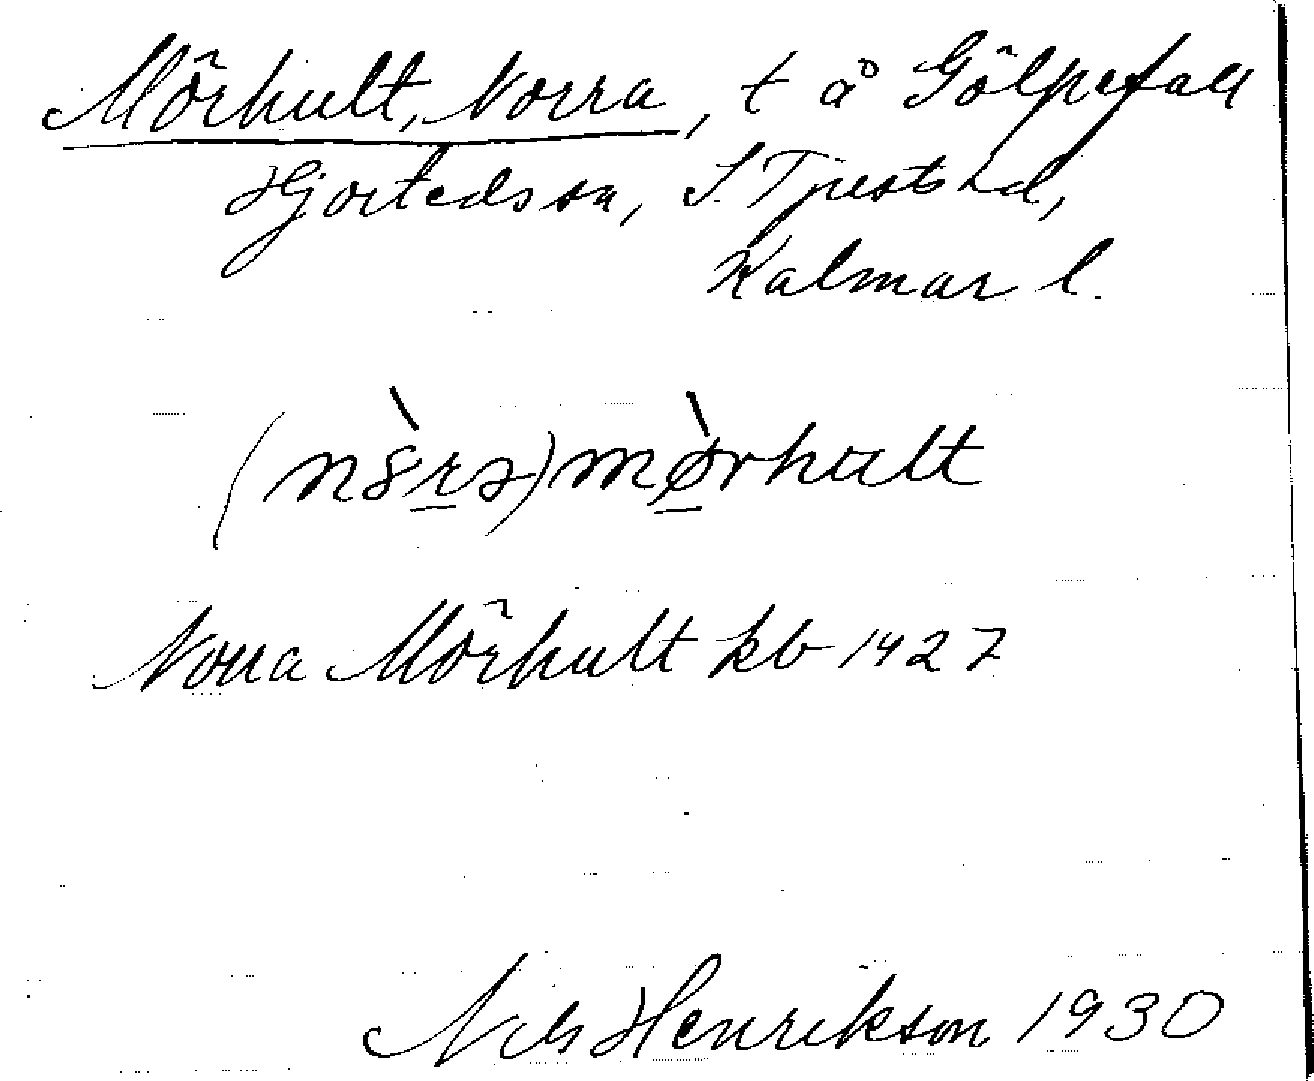 Mörhult, Norra, t å Gölpefall
Hjorteds sn, S. Tjusts hd,
Kalmar l.
(nòrə)mø̀rhult
Norra Mörhult kb 1427
Nils Henrikson 1930